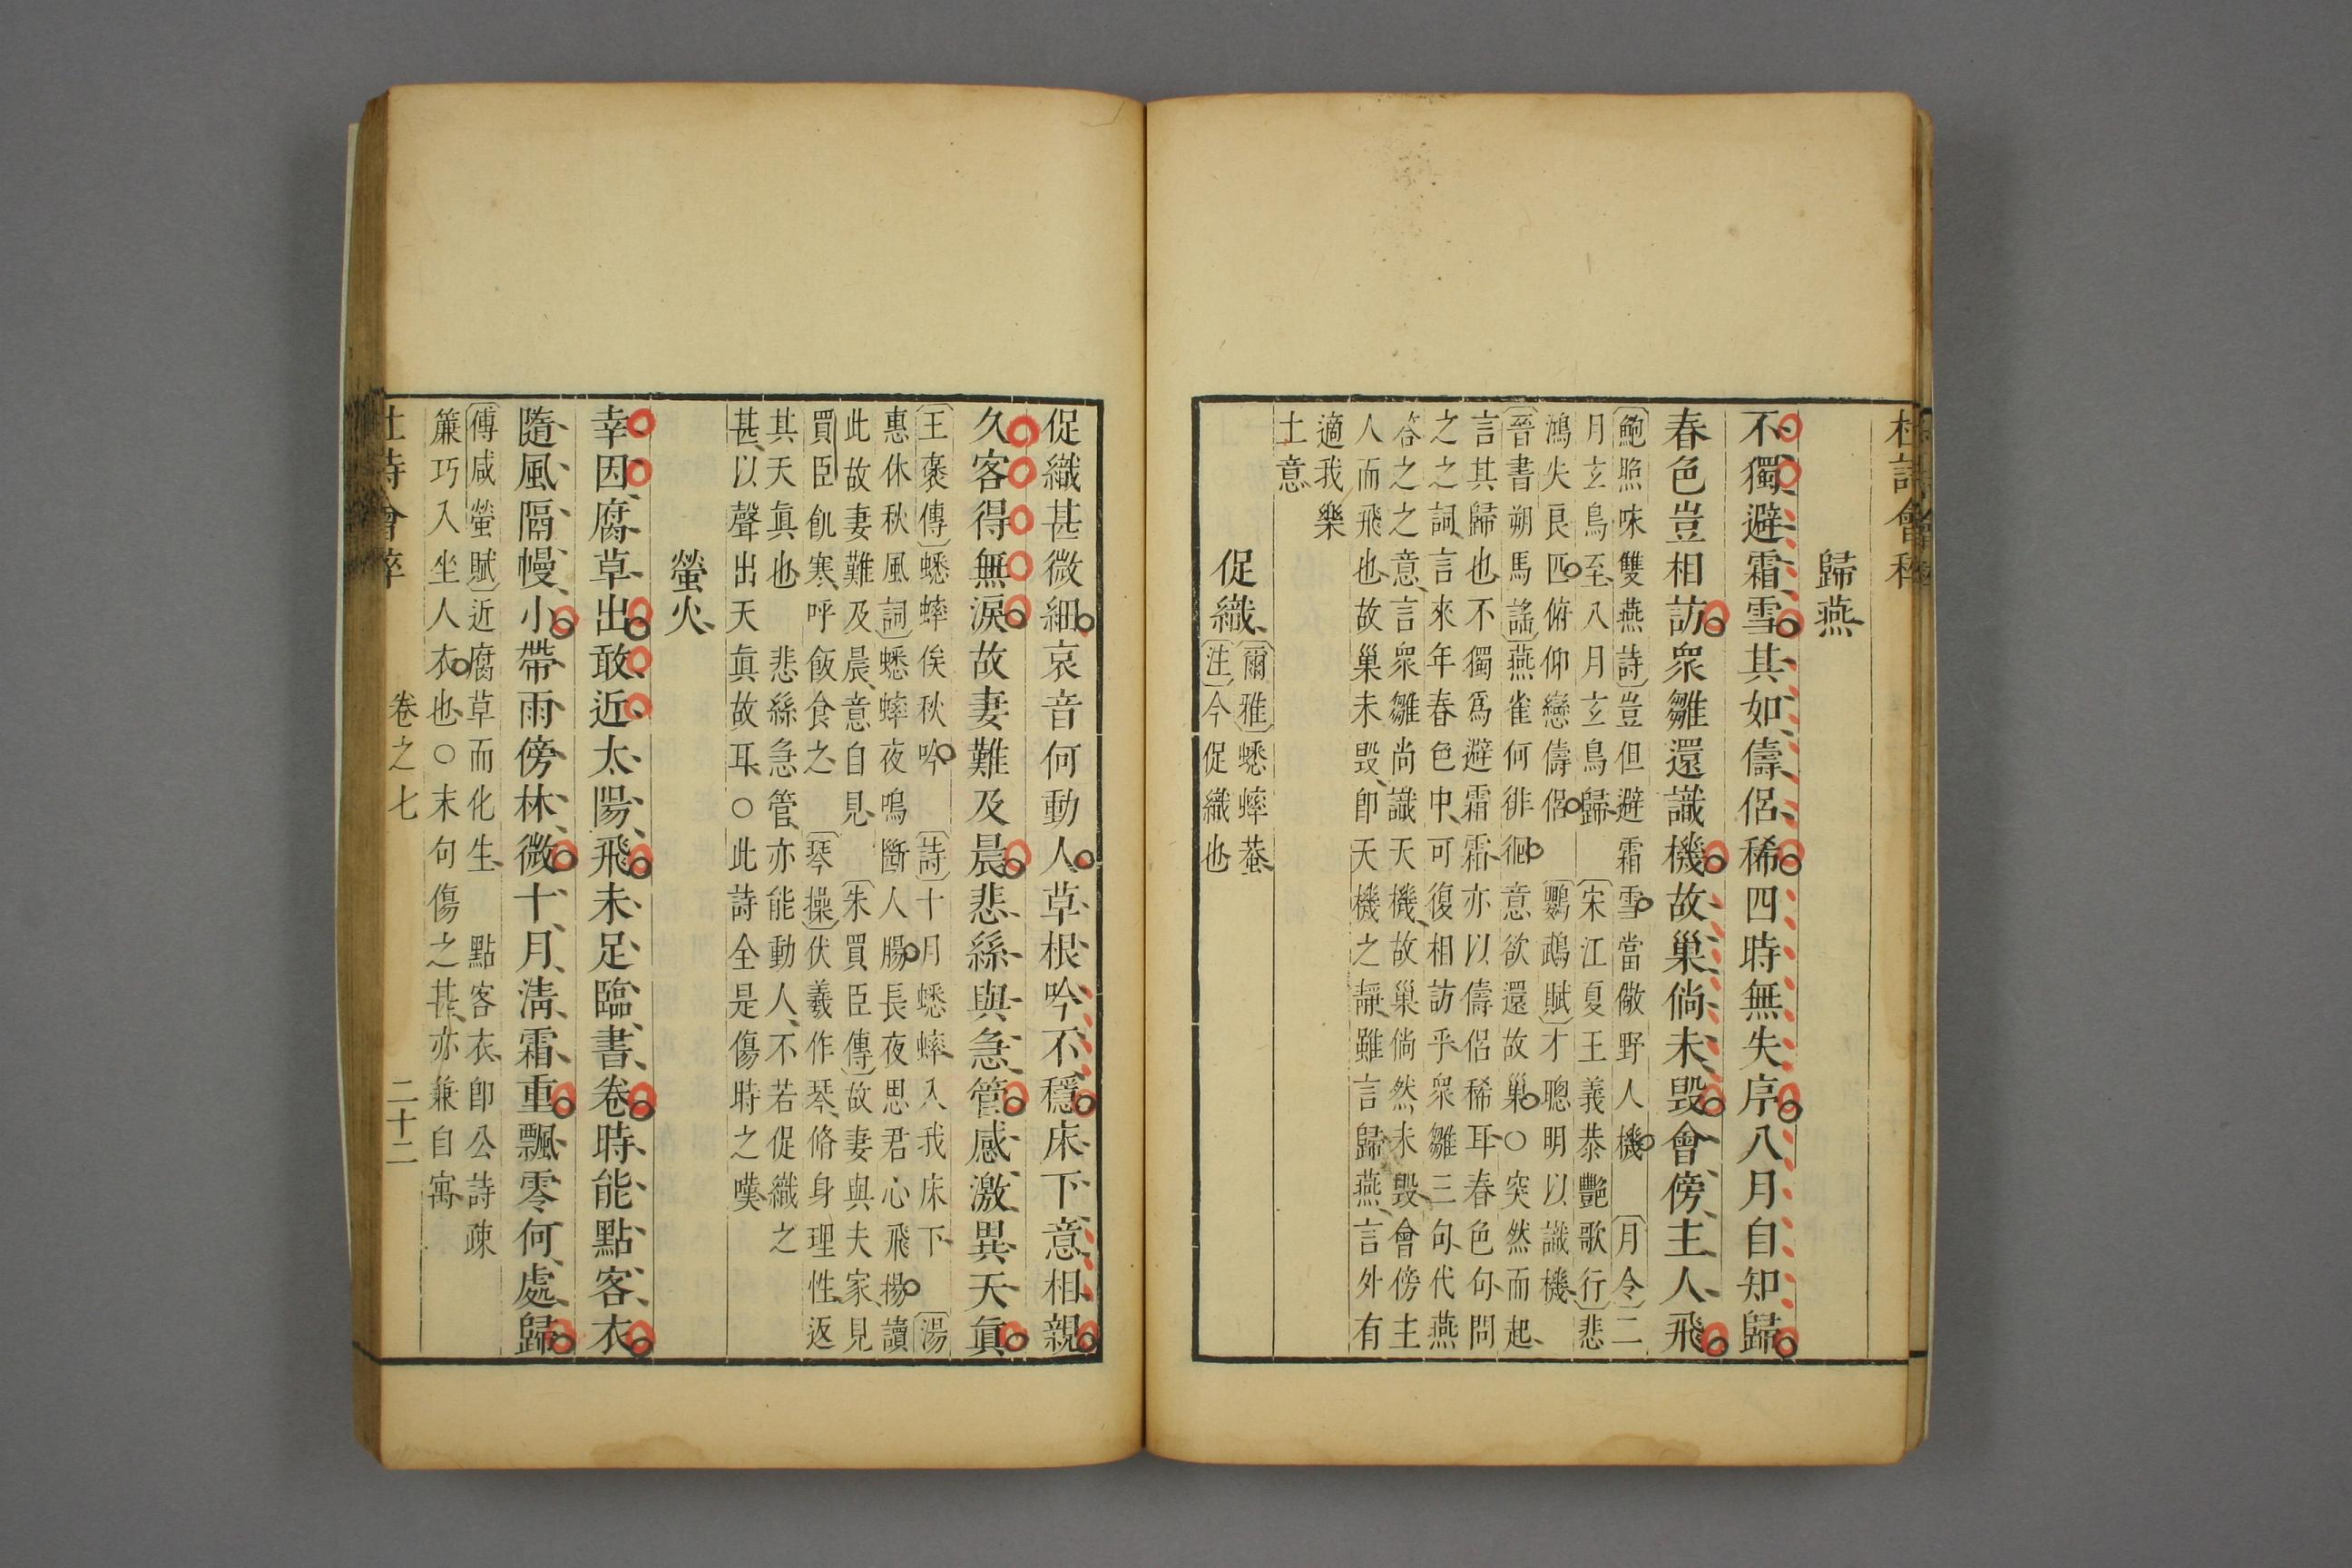 杜詩會稡
歸燕
不獨避霜雪其如儔侶稀四時無失序八月自知歸
春色豈相訪衆雛還識機故巢倘未毀會傍主人飛
〔鮑照咏雙燕詩〕豈但避霜雪當儆野人機〔月令〕二
月玄鳥至八月玄鳥歸〔宋江夏王義恭艷歌行〕悲
鴻失良匹俯仰戀儔侶〔鸚鵡賦〕才聰明以識機
〔晉書朔馬謠〕燕雀何徘徊意欲還故巢○突然而起
言其歸也不獨爲避霜霜亦以儔侶稀耳春色句問
之之詞言來年春色中可復相訪乎衆雛三句代燕
答之之意言衆雛尚識天機故巢倘然未毀會傍主
人而飛也故巢未毀卽天機之靜雖言歸燕言外有
適我樂
土意
促織〔爾雅〕蟋蟀蛬
〔注〕今促織也
促織甚微細哀音何動人草根吟不穩床下意相親
久客得無淚故妻難及晨悲絲與急管感激異天眞
〔王褒傳〕蟋蟀俟秋吟〔詩〕十月蟋蟀入我床下〔湯
惠休秋風詞〕蟋蟀夜鳴斷人腸長夜思君心飛揚讀
此故妻難及晨意自見〔朱買臣傳〕故妻與夫家見
買臣飢寒呼飯食之〔琴操〕伏羲作琴脩身理性返
其天眞也悲絲急管亦能動人不若促織之
甚以聲出天眞故耳○此詩全是傷時之嘆
螢火
幸因腐草出敢近太陽飛未足臨書卷時能點客衣
隨風隔幔小帶雨傍林微十月淸霜重飄零何處歸
〔傅咸螢賦〕近腐草而化生點客衣卽公詩疎
簾巧入坐人衣也○末句傷之甚亦兼自寓
杜詩會稡 卷之七 二十二